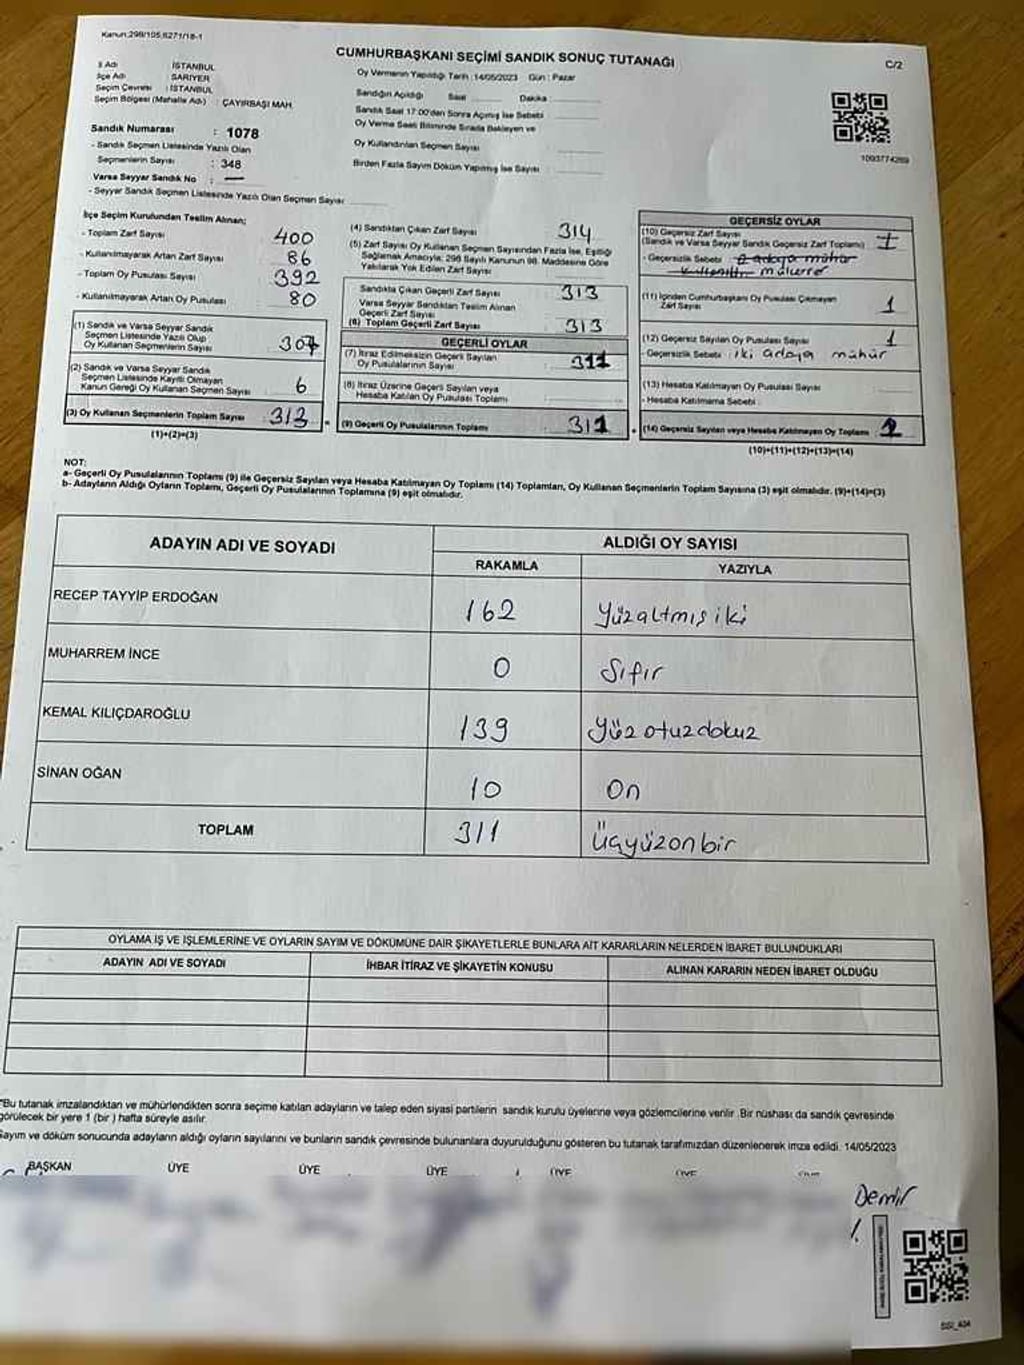 Kanun:298/105,6271/18-1
CUMHURBAŞKANI SEÇİMİ SANDIK SONUÇ TUTANAĞI
C/2
İl Adı İSTANBUL
İlçe Adı SARIYER
Seçim Çevresi : İSTANBUL
Seçim Bölgesi (Mahalle Adı) : ÇAYIRBAŞI MAH.
Sandık Numarası : 1078
- Sandık Seçmen Listesinde Yazılı Olan
Seçmenlerin Sayısı : 348
Varsa Seyyar Sandık No : —
- Seyyar Sandık Seçmen Listesinde Yazılı Olan Seçmen Sayısı
Oy Vermenin Yapıldığı Tarih : 14/05/2023 Gün : Pazar
Sandığın Açıldığı Saat Dakika
Sandık Saat 17:00'den Sonra Açılmış İse Sebebi
Oy Verme Saati Bitiminde Sırada Bekleyen ve
Oy Kullandırılan Seçmen Sayısı
Birden Fazla Sayım Döküm Yapılmış İse Sayısı
1093774269
İlçe Seçim Kurulundan Teslim Alınan;
- Toplam Zarf Sayısı 400
- Kullanılmayarak Artan Zarf Sayısı 86
- Toplam Oy Pusulası Sayısı 392
- Kullanılmayarak Artan Oy Pusulası 80
(1) Sandık ve Varsa Seyyar Sandık
Seçmen Listesinde Yazılı Olup
Oy Kullanan Seçmenlerin Sayısı 307
(2) Sandık ve Varsa Seyyar Sandık
Seçmen Listesinde Kayıtlı Olmayan
Kanun Gereği Oy Kullanan Seçmen Sayısı 6
(3) Oy Kullanan Seçmenlerin Toplam Sayısı 313
(1)+(2)=(3)
(4) Sandıktan Çıkan Zarf Sayısı 314
(5) Zarf Sayısı Oy Kullanan Seçmen Sayısından Fazla İse, Eşitliği
Sağlamak Amacıyla; 298 Sayılı Kanunun 98. Maddesine Göre
Yakılarak Yok Edilen Zarf Sayısı
Sandıkta Çıkan Geçerli Zarf Sayısı 313
Varsa Seyyar Sandıktan Teslim Alınan
Geçerli Zarf Sayısı
(6) Toplam Geçerli Zarf Sayısı 313
GEÇERLİ OYLAR
(7) İtiraz Edilmeksizin Geçerli Sayılan
Oy Pusulalarının Sayısı 311
(8) İtiraz Üzerine Geçerli Sayılan veya
Hesaba Katılan Oy Pusulası Toplamı
(9) Geçerli Oy Pusulalarının Toplamı 311
GEÇERSİZ OYLAR
(10) Geçersiz Zarf Sayısı
(Sandık ve Varsa Seyyar Sandık Geçersiz Zarf Toplamı)
- Geçersizlik Sebebi 2 adaya mühür
mükerrer
(11) İçinden Cumhurbaşkanı Oy Pusulası Çıkmayan
Zarf Sayısı 1
(12) Geçersiz Sayılan Oy Pusulası Sayısı 1
- Geçersizlik Sebebi : iki adaya mühür
(13) Hesaba Katılmayan Oy Pusulası Sayısı
- Hesaba Katılmama Sebebi :
(14) Geçersiz Sayılan veya Hesaba Katılmayan Oy Toplamı 2
(10)+(11)+(12)+(13)=(14)
NOT:
a- Geçerli Oy Pusulalarının Toplamı (9) ile Geçersiz Sayılan veya Hesaba Katılmayan Oy Toplamı (14) Toplamları, Oy Kullanan Seçmenlerin Toplam Sayısına (3) eşit olmalıdır. (9)+(14)=(3)
b- Adayların Aldığı Oyların Toplamı, Geçerli Oy Pusulalarının Toplamına (9) eşit olmalıdır.
ADAYIN ADI VE SOYADI ALDIĞI OY SAYISI
RAKAMLA YAZIYLA
RECEP TAYYİP ERDOĞAN 162 Yüzaltmışiki
MUHARREM İNCE 0 Sıfır
KEMAL KILIÇDAROĞLU 139 Yüzotuzdokuz
SİNAN OĞAN 10 On
TOPLAM 311 Üçyüzonbir
OYLAMA İŞ VE İŞLEMLERİNE VE OYLARIN SAYIM VE DÖKÜMÜNE DAİR ŞİKAYETLERLE BUNLARA AİT KARARLARIN NELERDEN İBARET BULUNDUKLARI
ADAYIN ADI VE SOYADI İHBAR İTİRAZ VE ŞİKAYETİN KONUSU ALINAN KARARIN NEDEN İBARET OLDUĞU
*Bu tutanak imzalandıktan ve mühürlendikten sonra seçime katılan adayların ve talep eden siyasi partilerin sandık kurulu üyelerine veya gözlemcilerine verilir. Bir nüshası da sandık çevresinde
görülecek bir yere 1 (bir) hafta süreyle asılır.
Sayım ve döküm sonucunda adayların aldığı oyların sayılarını ve bunların sandık çevresinde bulunanlara duyurulduğunu gösteren bu tutanak tarafımızdan düzenlenerek imza edildi. 14/05/2023
BAŞKAN ÜYE ÜYE ÜYE ÜYE ÜYE
Demir
SSİ_404